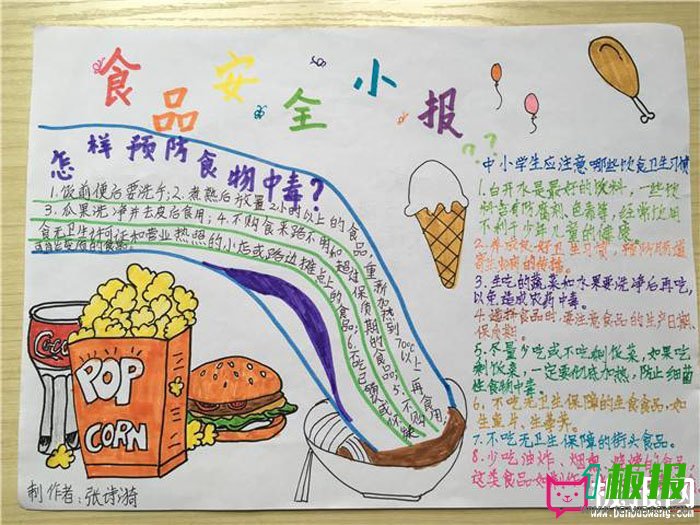 食品安全小报
怎样预防食物中毒?
1.饭前便后要洗手;2.煮熟后放置2小时以上的食品,重新加热到70℃以上再食用
3.瓜果洗净并去皮后食用;4.不购食来路不明和超过保质期的食品;5.不购
食无卫生许可证和营业执照的小店或路边摊点上的食品;6.不吃已
中小学生应注意哪些饮食卫生习惯
1.白开水是最好的饮料,一些饮
料含有防腐剂、色素等,经常饮用
不利于少年儿童的健康
2.养成良好卫生习惯,预防肠道
寄生虫病的传播。
3.生吃的蔬菜和水果要洗净后再吃,
以免造成农药中毒。
4.选择食品时,要注意食品的生产日期
保质期。
5.尽量少吃或不吃剩饭菜,如果吃
剩饭菜,一定要彻底加热,防止细菌
性食物中毒
6.不吃无卫生保障的生食食品,如
生鱼片、生毒芹。
7.不吃无卫生保障的街头食品。
8.少吃油炸、烟熏、烧烤的食品
这类食品如制作
Coca
POP
CORN
制作者:张诗漪
板报
www.banbaowang.com